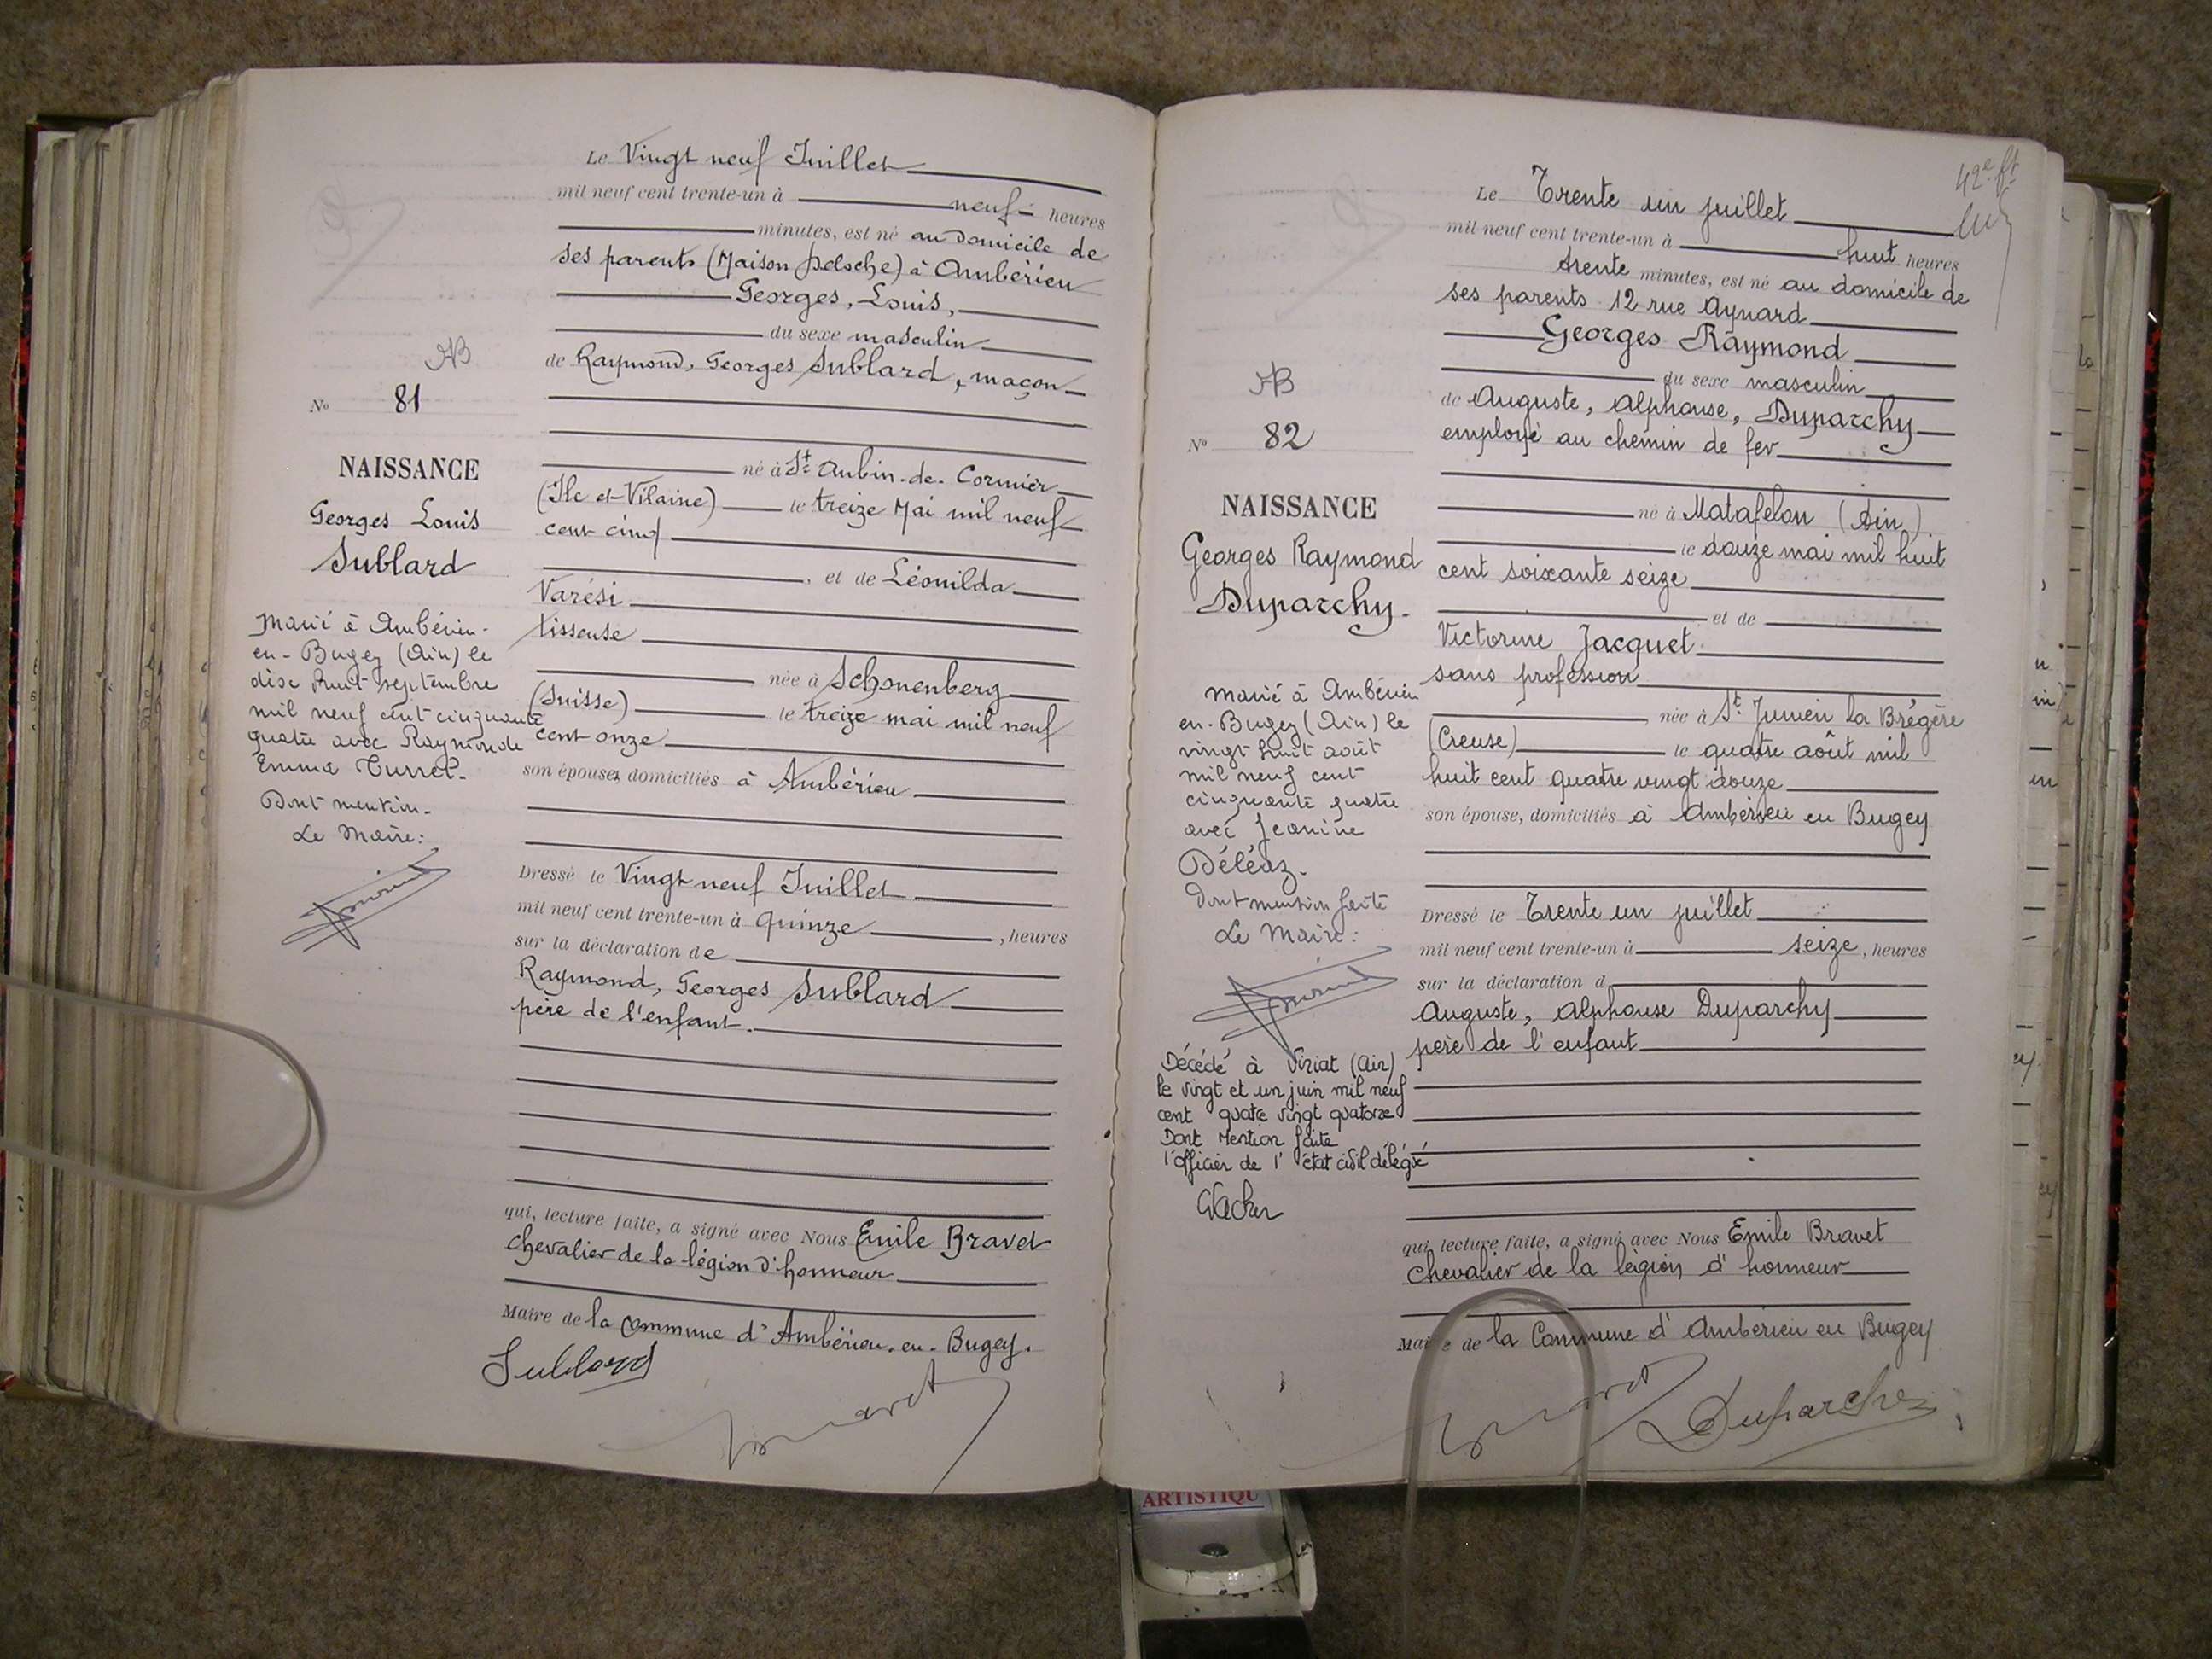 AB
No 81
NAISSANCE
Georges Louis
Sublard
Marié à Ambérieu-
en-Bugey (Ain) le
dix huit septembre
mil neuf cent cinquante
quatre avec Raymonde
Emma Turrel.
Dont mention.
Le Maire:
Le Vingt neuf Juillet
mil neuf cent trente-un à neuf heures
minutes, est né au domicile de
ses parents (Maison Deloche) à Ambérieu
Georges, Louis,
du sexe masculin
de Raymond, Georges Sublard, maçon
né à St Aubin-de-Cormier
(Ile et-Vilaine) le treize Mai mil neuf
cent cinq
, et de Léonilda
Varési
tisseuse
née à Schonenberg
(Suisse) le treize mai mil neuf
cent onze
son épouse, domiciliés à Ambérieu
Dressé le Vingt neuf Juillet
mil neuf cent trente-un à quinze , heures
sur la déclaration de
Raymond, Georges Sublard
père de l'enfant.
qui, lecture faite, a signé avec Nous Emile Bravet
chevalier de la légion d'honneur
Maire de la commune d'Ambérieu-en-Bugey.
Sublard
Bravet
42e ft
AB
No 82
NAISSANCE
Georges Raymond
Duparchy.
Marié à Ambérieu
en-Bugey (Ain) le
vingt huit août
mil neuf cent
cinquante quatre
avec Jeanine
Déléaz.
Dont mention faite
Le Maire:
Décédé à Viriat (Ain)
le vingt et un juin mil neuf
cent quatre vingt quatorze
Dont Mention faite
l'officier de l'état civil délégué
Le Trente un juillet
mil neuf cent trente-un à huit heures
trente minutes, est né au domicile de
ses parents 12 rue Aynard
Georges Raymond
du sexe masculin
de Auguste, Alphonse, Duparchy
employé au chemin de fer
né à Matafelon (Ain)
le douze mai mil huit
cent soixante seize
et de
Victorine Jacquet
sans profession
née à St. Junien La Brégère
(Creuse) le quatre août mil
huit cent quatre vingt douze
son épouse, domiciliés à Ambérieu en Bugey
Dressé le Trente un juillet
mil neuf cent trente-un à seize, heures
sur la déclaration d
Auguste, Alphonse Duparchy
père de l'enfant
qui, lecture faite, a signé avec Nous Emile Bravet
Chevalier de la légion d'honneur
Maire de la Commune d'Ambérieu en Bugey
Bravet Duparchy
ARTISTIQU